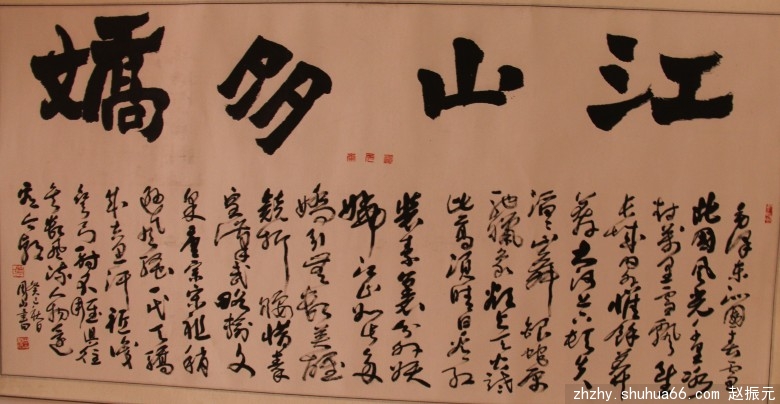 江山多嬌
毛澤東沁園春雪
北國風光千里冰
封萬里雪飄望
長城內外惟餘莽
莽大河上下頓失
滔滔山舞銀蛇原
馳蠟象欲與天公試
比高須晴日看紅
裝素裹分外妖
嬈江山如此多
嬌引無數英雄
競折腰惜秦
皇漢武略輸文
采唐宗宋祖稍
遜風騷一代天驕
成吉思汗祇識
彎弓射大雕俱往
矣數風流人物還
看今朝
癸巳
書
zhzhy.shuhua66.com 赵振元